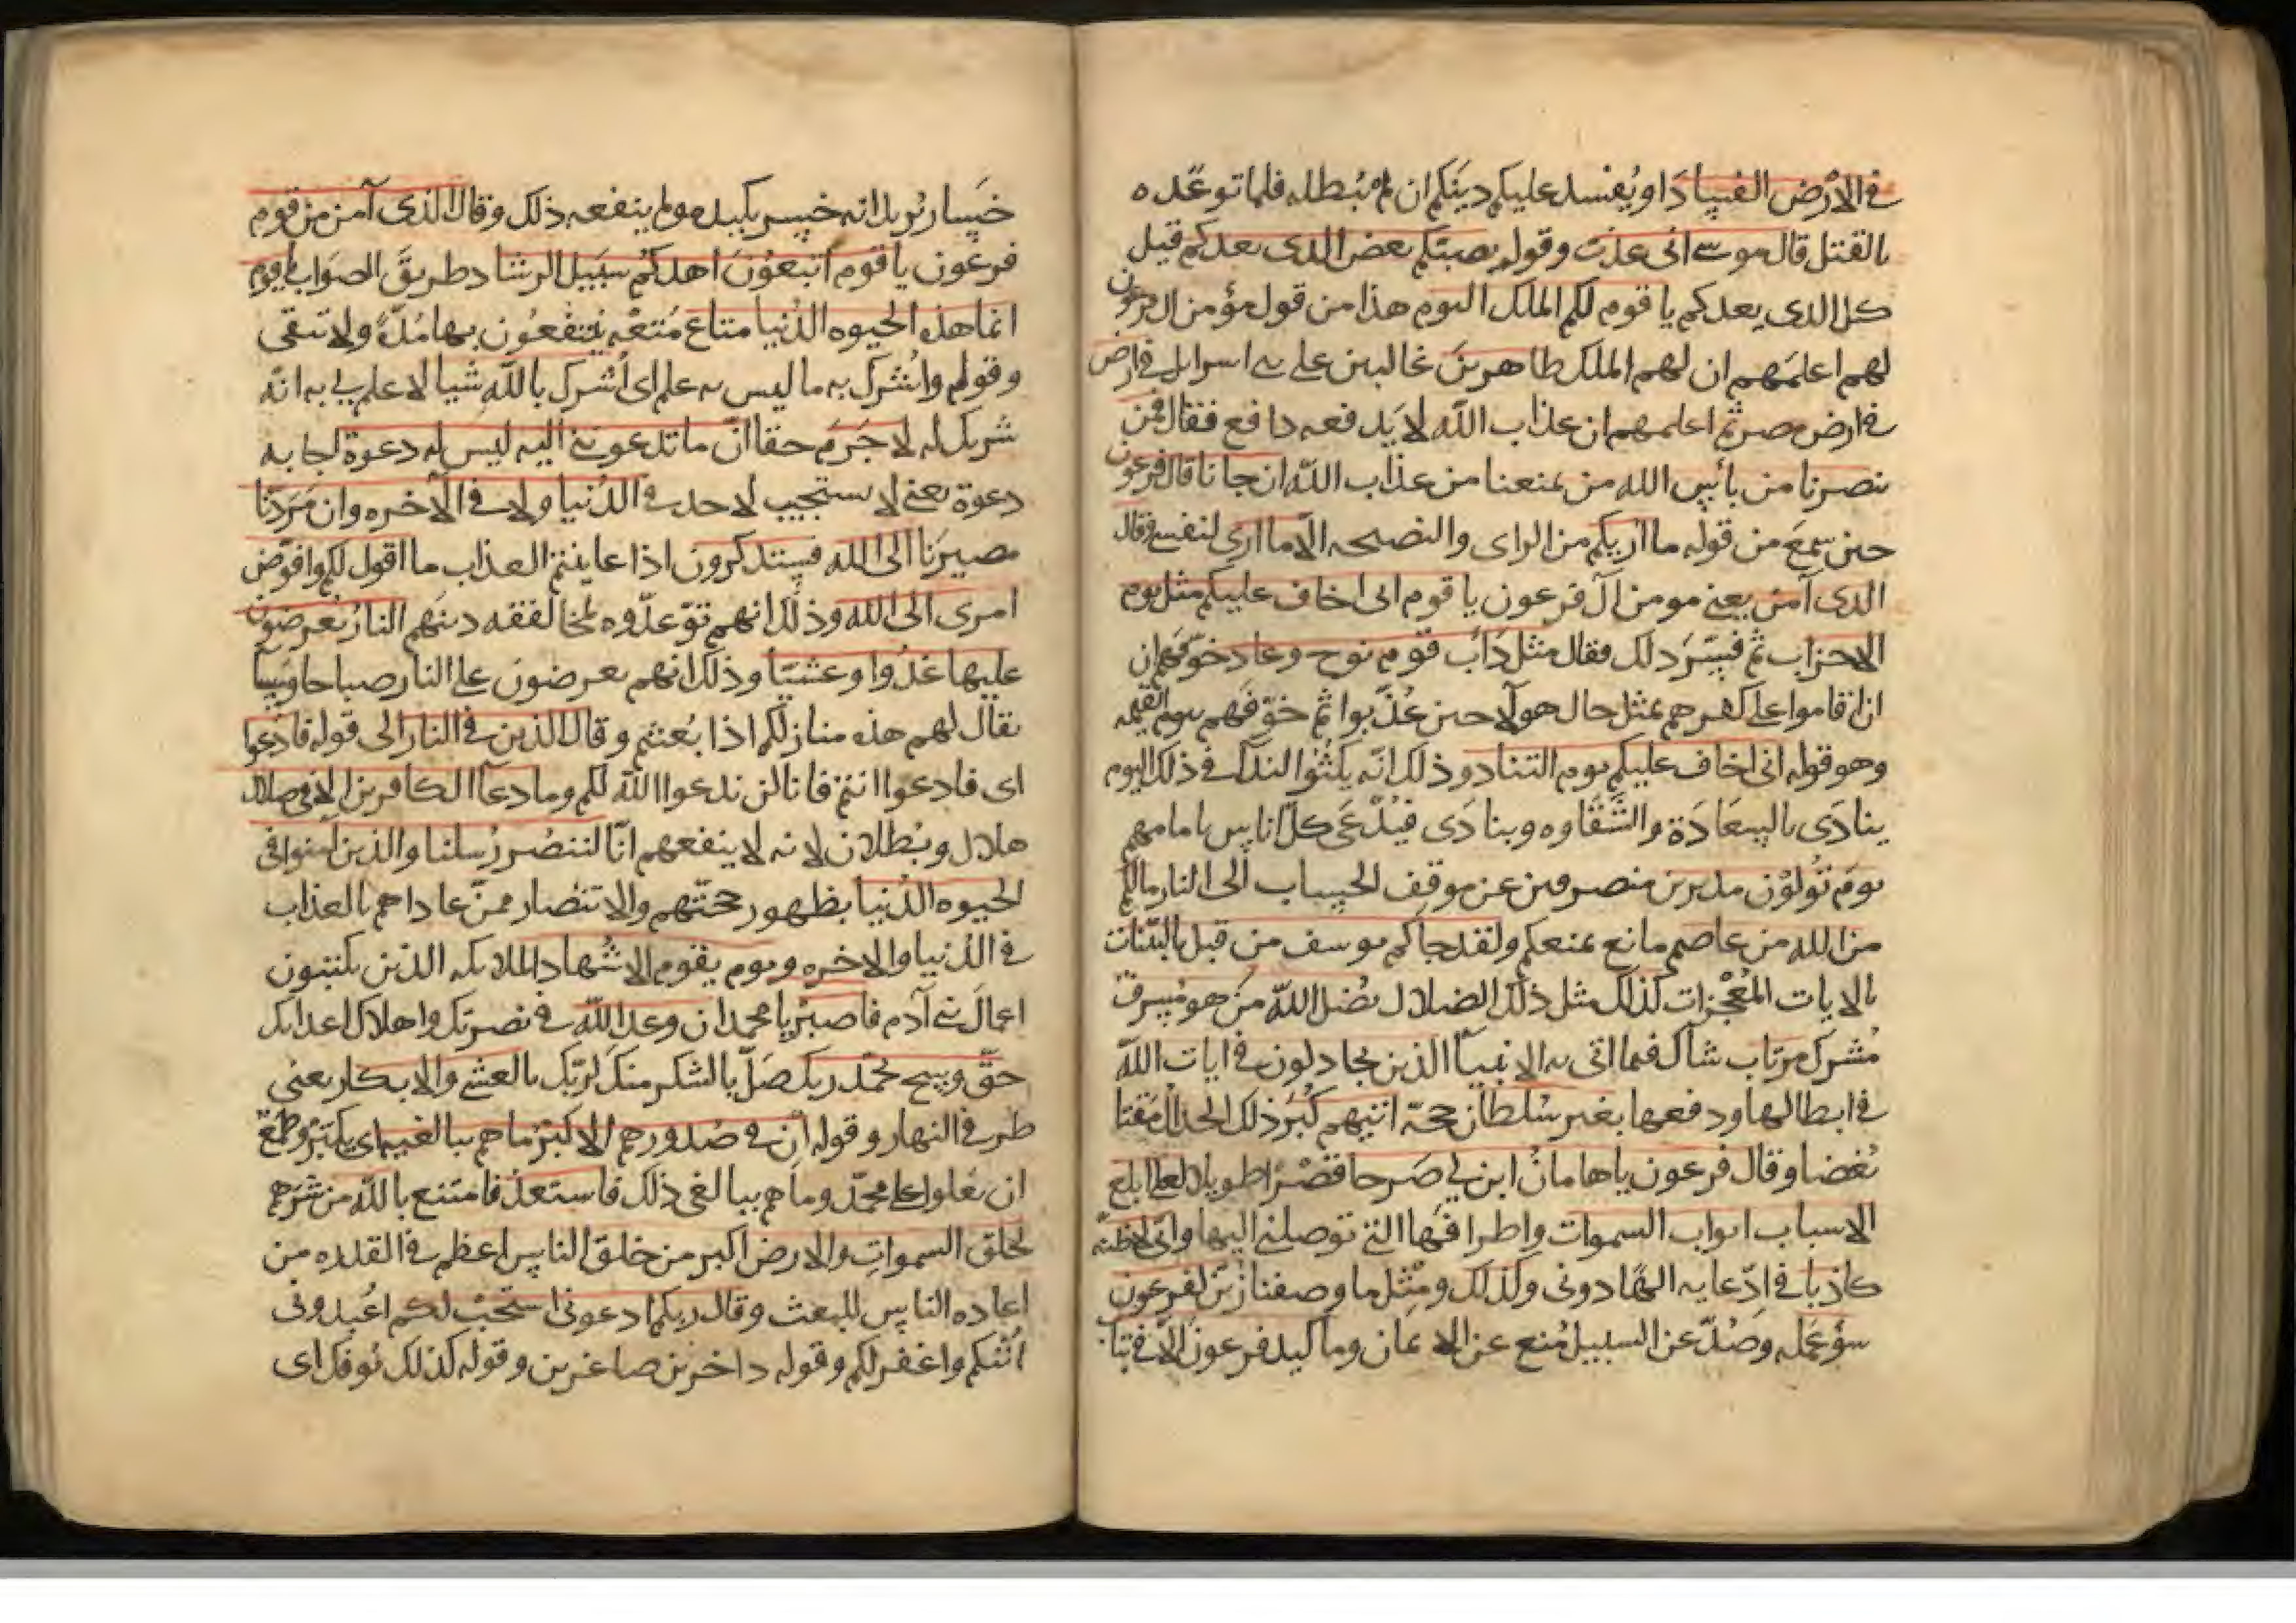 في الأرض الفساد او يُفسد عليكم دينَكم ان لم نُبطله فلما توعّده
بالقتل قال موسى انى عذت وقوله يصبكم بعض الذى يعدكم قيل
كل الذى يعدكم يا قوم لكم الملك اليوم هذا من قول مؤمن ال فرعون
لهم اعلمهم ان لهم الملك ظاهرين غالبين على بنى اسرايل فى ارض
فى ارض مصر ثم اعلمهم ان عذاب الله لا يدفعه دافع فقال فمن
ينصرنا من بأس الله من يمنعنا من عذاب الله ان جانا قال فرعون
حين سمع من قوله ما اريكم من الراى والنصيحه الّا ما ارى لنفسى وقال
الذى آمن يعنى مومن آل فرعون يا قوم انى اخاف عليكم مثل يوم
الاحزاب ثم فسّر ذلك فقال مثل دَأب قوم نوح وعاد خوّفهم ان
ان اقاموا على كفرهم بمثل حال هولآ حين عُذّبوا ثم خوّفهم بيوم القيمه
وهو قوله انى اخاف عليكم يوم التناد وذلك انّه يكثُر الندآ فى ذلك اليوم
ينادَى بالسعَادَة والشَّقَاوه وينادَى فيُدْعَى كلّ اناس بامامهم
يومَ تُولّوْن مدبرين منصرفين عن موقف الحساب الى النار مالكم
من الله من عاصم مانع يمنعكم ولقد جآكم يوسف من قبل بالبيّنات
بالايات المُعْجزات كذلك مثل ذلك الضلال يُضل اللهّ من هو مُسرف
مُشرك مرتاب شاكّ فيما اتى به الانبيآ الذين يجادلون فى ايات اللهّ
فى ابطالها ودفعها بغير سُلطان حجّة اتيهم كَبُرَ ذلك الجدال مَقتا
بُغضا وقال فرعون يا هامانُ ابن لى صَرحا قَصْرًا طويلا لعلى ابلغ
الاسباب ابواب السموات واطرافَها التى توصلنى اليها وانّى لاظنّه
كاذبا فى ادّعايه الهًا دونى وكذلك ومثْل ما وصفنا زُيّن لفرعون
سؤ عَمَله وصُدّ عن السبيل مُنع عن الايمان وما كيد فرعون الّا فى تباب
خَسار يُريد انه خسر كيده ولم ينفعه ذلك وقال الذى آمن من قوم
فرعون يا قوم اتبعُون اهدكُم سَبيل الرشاد طريقَ الصوَاب يا قوم
انما هذه الحيوه الدُنيا متاع مُتعْه يَنتفعُون بها مُدّةً ولا تبقى
وقوله واُشرك به ما ليس به علم اى أشرك باللهّ شيا لا علم لى به انّه
شريك له لا جَرَم حقا انّ ما تدعوننى اليه ليس له دعوة اجابه
دعوة يعنى لا يستجيب لاحد فى الدُنيا ولا فى الأخره وان مَرَدّنا
مصيرَنا الى الله فستذكرون اذا عاينتم العذاب ما اقول لكم وافوّض
امرى الى الله وذلك انهم توّعدّوه لمخالفته دينَهم النارُ يعرضون
عليها غدُوا وعشيّا وذلك انهم يعرضون على النار صباحا ومسآ
يقال لهم هذه منازلكم اذا بُعثتم وقال الذين فى النار الى قوله فادْعوا
اى فادعوا انتم فانا لن ندعوا اللهّ لكم وما دعآ الكافرين الا فى ضلال
هلال وبُطلان لانه لا ينفعهم انّا لننصُر رُسلنا والذين آمنوا فى
الحيوه الدُنيا بظهور حجّتهم والانتصار ممّن عاداهم بالعذاب
فى الدُنيا والاخره ويوم يقوم الاشْهاد الملايكه الذين يكتبون
اعمالَ بنى آدم فاصبرْ يا محمد ان وعد اللهّ فى نصرتك واهلاك اعدايك
حَقّ وسبح بحمد ربك صَلّ بالشكر منك لربّك بالعشى والابكار يعنى
طرفى النهار وقوله اِن فى صُدورهم الا كبْرٌ ما هم ببالغيه اى تكبّرٌ وطمَع
ان يَعلوا على محمّد وما هم ببالغى ذلك فاستعذ فامتنع باللهّ من شرّهم
لخلق السموات والارض اكبر من خلق الناس اعظم فى القدره من
اعاده الناس للبعث وقال ربكم ادعونى استجبْ لكم اعُبدونى
اُثبكم واغفر لكم وقوله داخرين صاغرين وقوله كذلك يُوفك اى